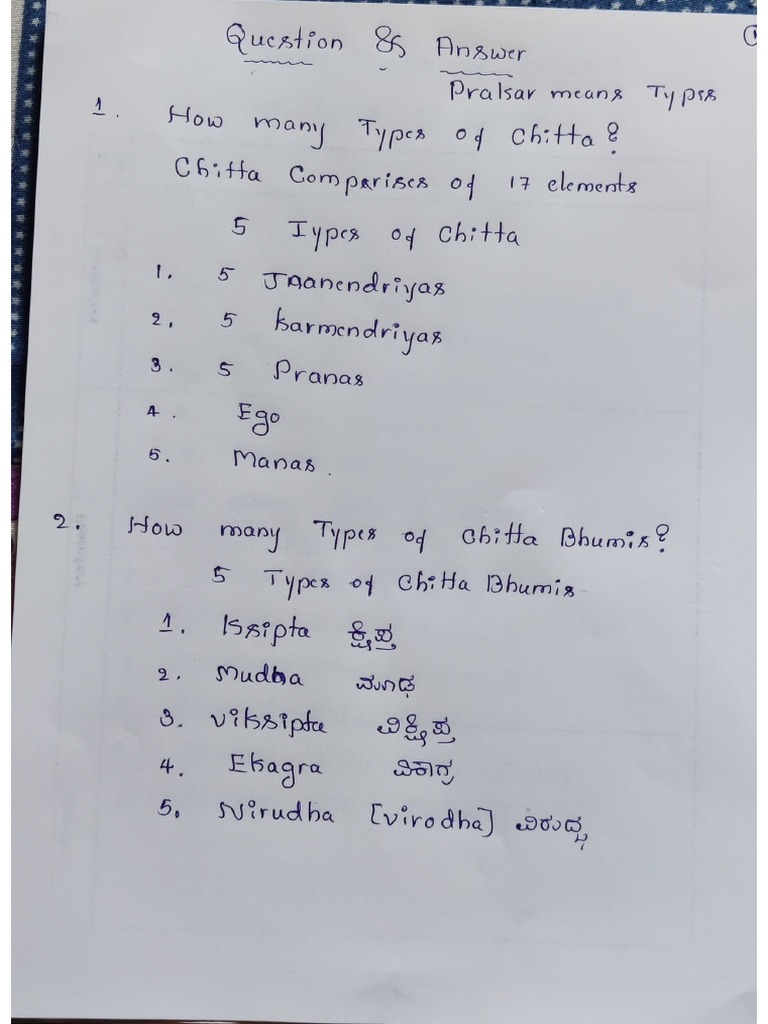 Question & Answer
Prakar means Types
1. How many Types of Chitta?
Chitta Comparises of 17 elements
5 Types of Chitta
1. 5 Jnanendriyas
2. 5 Karmendriyas
3. 5 Pranas
4. Ego
5. Manas.
2. How many Types of Chitta Bhumis?
5 Types of Chitta Bhumis
1. Kssipta ಕ್ಷಿಪ್ತ
2. Mudha ಮೂಢ
3. Vikssipta ವಿಕ್ಷಿಪ್ತ
4. Ekagra ವಿಕಾಗ್ರ
5. Nirudha [virodha] ವಿರುದ್ಧ